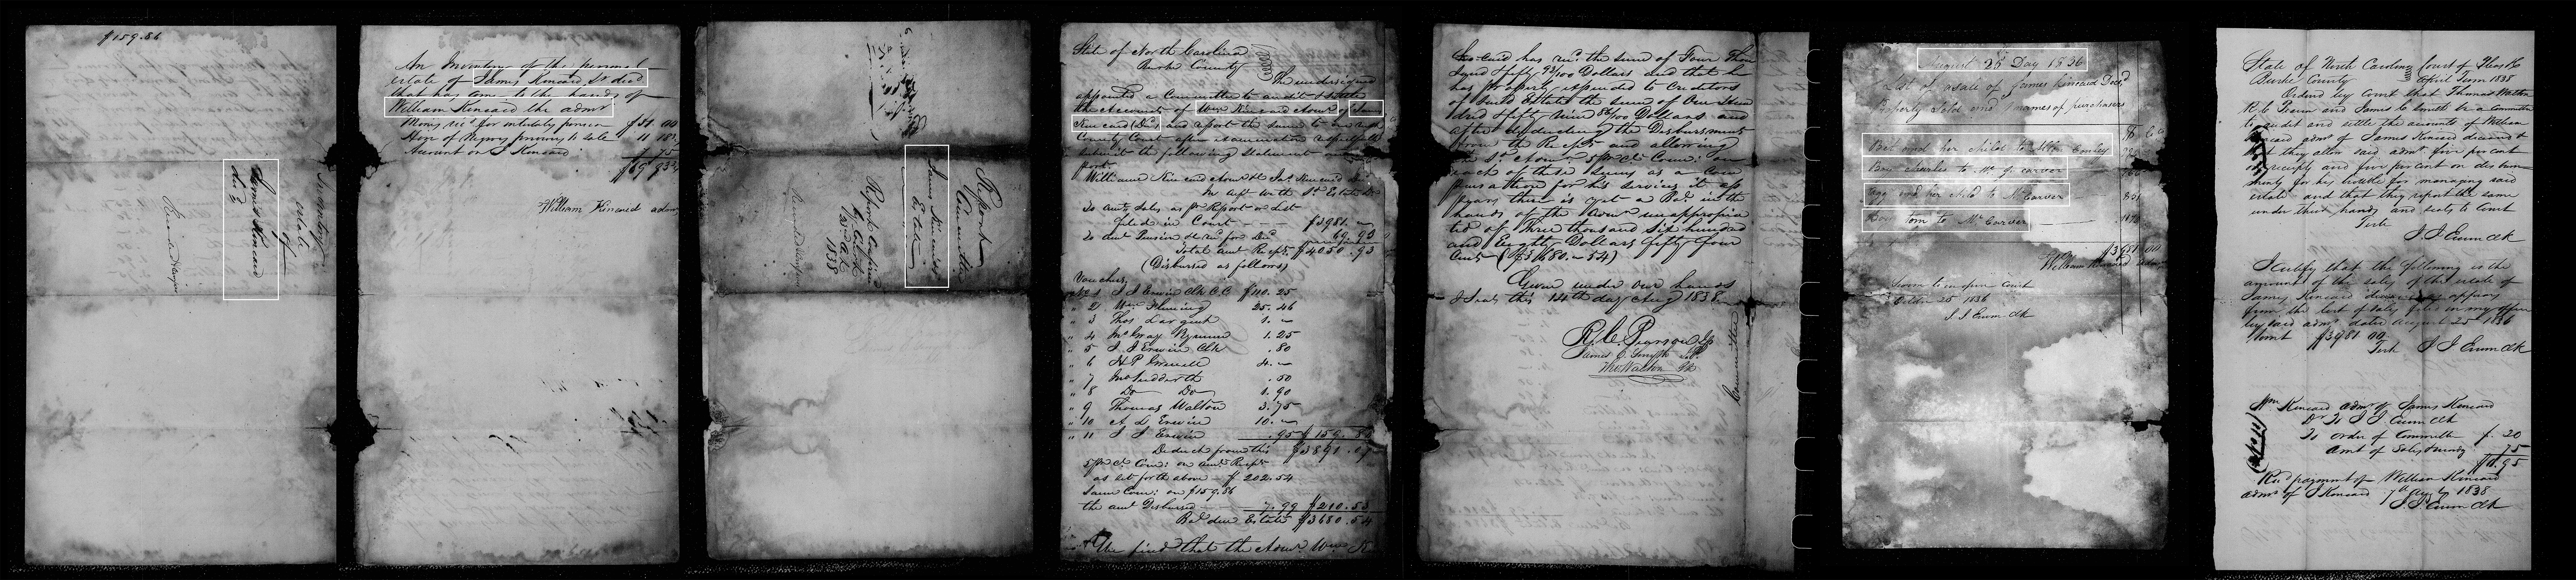 $159.86
Inventory
estate
of
James Kincaid
dec'd
An Inventory of the personal
estate of James Kincaid Sr. decd
that has come to the hands of
William Kincaid the admr
Mony recd for pension $51.00
Hire of Negros previous to sale 11 18
Account on J Kincaid 7 75
$69 93
William Kincaid admr
Report
Committee
James Kincaids
Estate
Report confirmed
1838
State of North Carolina
Burke County
The undersigned
appointed a Committee to audit & state
the accounts of Wm Kincaid Admr of Jas
Kincaid (Dec) and report the same to
County Court
submit the following statement
port
William Kincaid Admr of Jas Kincaid Dec
In acpt with Sd Estate Dr
To amt Sales as pr Report or List
filed in Court $3981.—
To amt Pension &c recd for Decd 69.93
Total amt Recpts $4050.93
(Disbursed as follows)
Vouchers
No 1 J J Erwin Clk C.C. $110.25
" 2 Wm Fleming 25.46
" 3 Thos 1.—
" 4 1.25
" 5 J J Erwin Clk .80
" 6 4.—
" 7 Sudderth .50
" 8 Do Do 1.90
" 9 Thomas Walton 3.75
" 10 A L Erwin 10.—
" 11 J J Erwin .95 $159.86
Deduct from this $3891.07
5 pr ct Com: on amt Recpts
as set forth above $202.54
Same Com: on $159.86
the amt Disbursed 7.99 $210.53
Bal due Estate $3680.54
We find that the Admr Wm K
kincaid has recd the sum of Four Thou
sand & fifty 93/100 Dollars and that he
has properly expended to Creditors
of said Estate the sum of One Hun
dred & fifty Nine 86/100 Dollars and
after deducting the Disbursments
from the Recpts and allowing
the sd Admr 5 pr ct Com: on
each of these sums as a Com
pensation for his services it ap
pears there is yet a Bal in the
hands of the Admr unappropria
ted of Three thousand Six hundred
and Eighty Dollars fifty four
cents ($3680.54)
Given under our hands
& Seals this 14th day Aug 1838
R. C. Pearson
James C. Smyth
Tho Walton
Committee
August 25 Day 1836
A List of a sale of James Kincaid Decd
Property Sold and names of purchasers
Bet and her child to
Boy Charles to Mr J Carver
Agg and her child to Mr Carver
Boy tom to Mr Carver
William Kincaid Admr
Sworn to in open court
October 25 1836
J J Erwin Clk
State of North Carolina Court of Pleas &c
Burke County April Term 1838
Ordered by Court that Thomas Walton
R. C. Pearson and James C Smyth be a Committee
to audit and settle the accounts of William
Kincaid admr of James Kincaid deceased &
that they allow said admr five percent
on receipts and five percent on disburs
ments for his trouble for managing said
estate and that they report the same
under their hands and seals to Court
Teste
J. J. Erwin Clk
I certify that the following is the
amount of the sales of the estate of
James Kincaid deceased as appears
from the list of sales filed in my office
by said admr dated August 25 1836
Amt $3981 00
Teste J J Erwin Clk
Wm Kincaid admr of James Kincaid
Dr To J J Erwin Clk
To order of Committee $.20
amt of Sales 75
$0.95
Recd payment of William Kincaid
admr of J Kincaid 1838
J. J. Erwin Clk